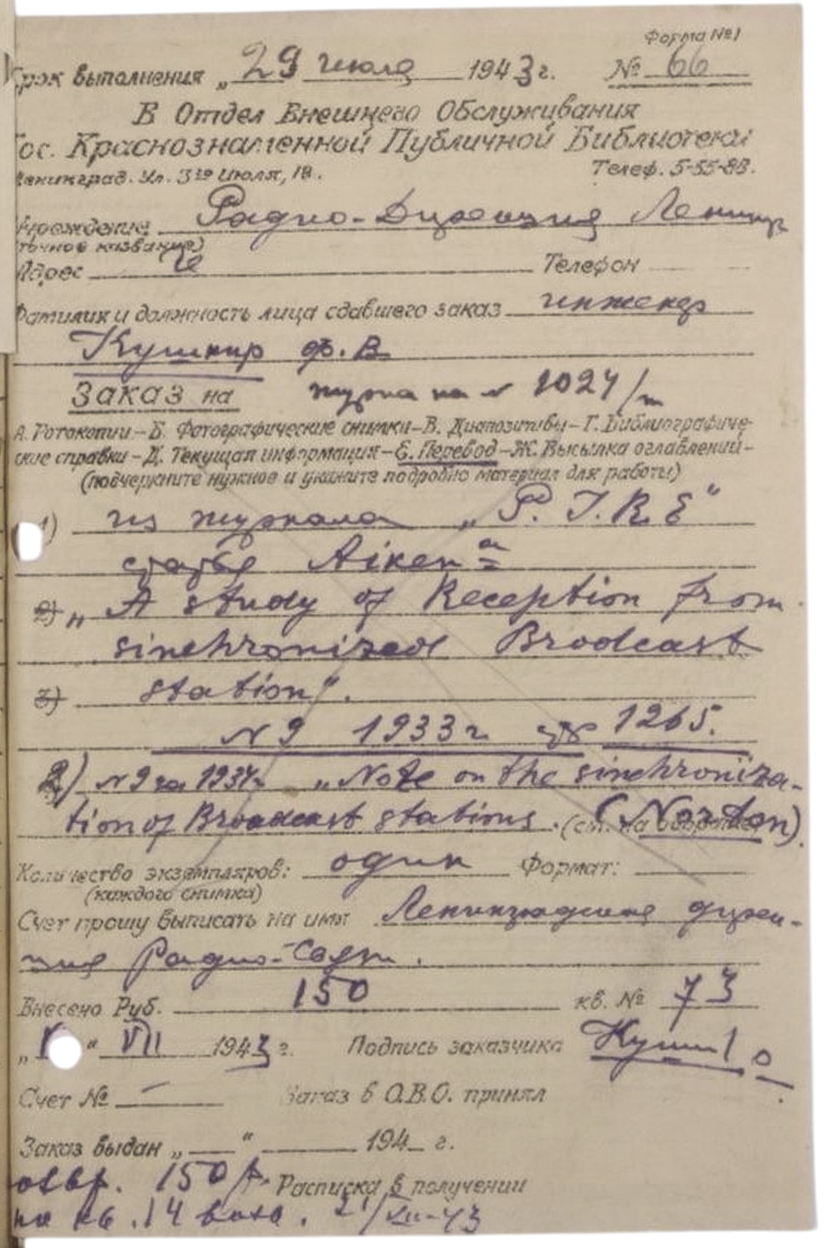 Форма №1
Срок выполнения „29 июля 1943 г. № 66
В Отдел Внешнего Обслуживания
Гос. Краснознаменной Публичной Библиотеки
Ленинград. Ул. 3го Июля, 18. Телеф. 5-55-88.
Учреждение Радио-Дирекция Ленингр
(точное название)
Адрес Телефон
Фамилия и должность лица сдавшего заказ инженер
Кушнир Ф.В
Заказ на журнал на № 1024/т
А. Фотокопии – Б. Фотографические снимки – В. Диапозитивы – Г. Библиографиче-
ские справки – Д. Текущая информация – Е. Перевод – Ж. Высылка оглавлений –
(подчеркните нужное и укажите подробно материал для работы)
1) из журнала „P. I. R. E“
статья Aiken а
2) „A study of Reception from
sinchronized Brodcast
3) station“.
№ 9 1933 г. стр 1265.
2) № 9 за 1934г. „Note on the sinchroniza-
tion of Broadcast stations. (см. на обороте) (Norton).
Количество экземпляров: один Формат:
(каждого снимка)
Счет прошу выписать на имя Ленинградская дирек-
ция Радио-связи.
Внесено Руб. 150 кв. № 73
„1“ VII 1943 г. Подпись заказчика
Счет № – Заказ в О.В.О. принял
Заказ выдан „ “ 194 г.
150 р. Расписка в получении
на кв. 14 21/VII-43